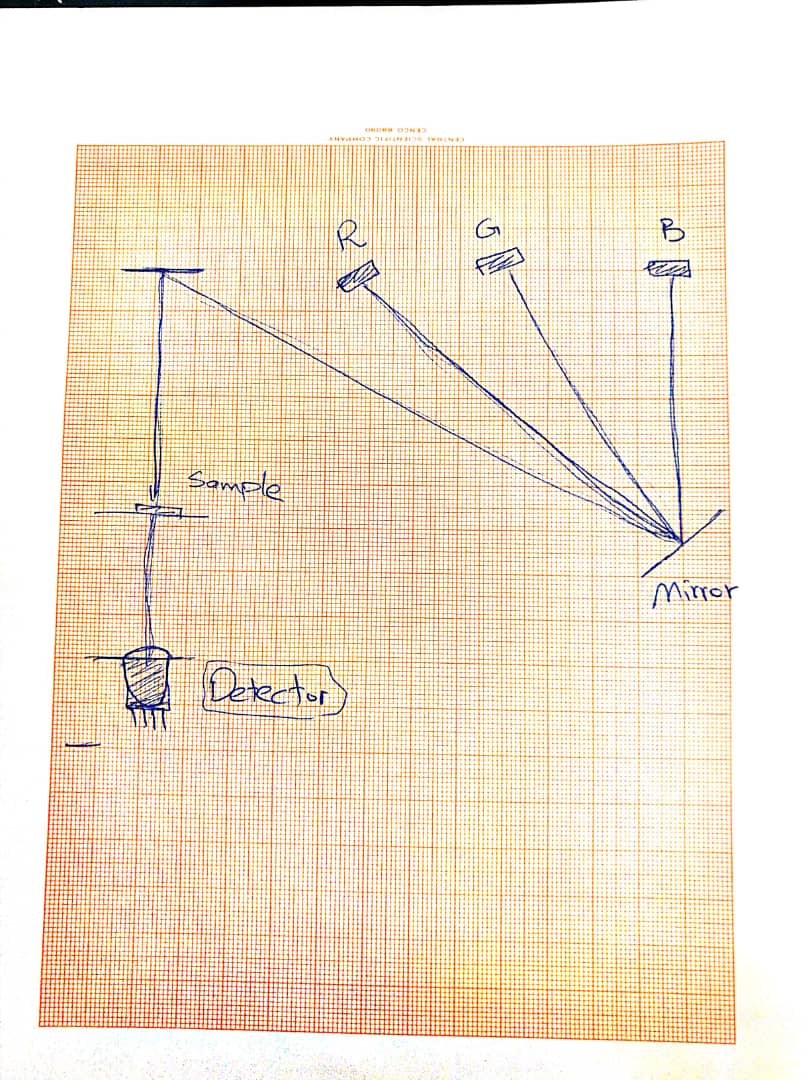 CENTRAL SCIENTIFIC COMPANY
R
G
B
Sample
Mirror
Detector